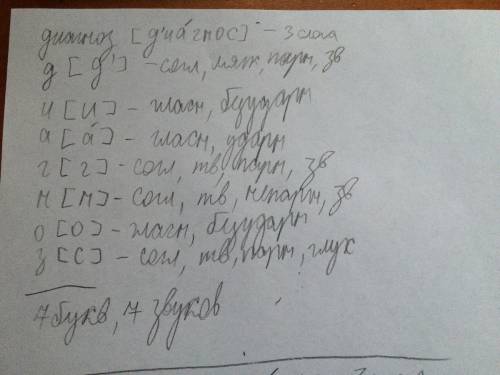 диагноз [д'иа́гнос] - 3 слога
д [д'] - согл, мяг, парн, зв
и [и] - гласн, безударн
а [а́] - гласн, ударн
г [г] - согл, тв, парн, зв
н [н] - согл, тв, непарн, зв
о [о] - гласн, безударн
з [с] - согл, тв, парн, глух
7 букв, 7 звуков